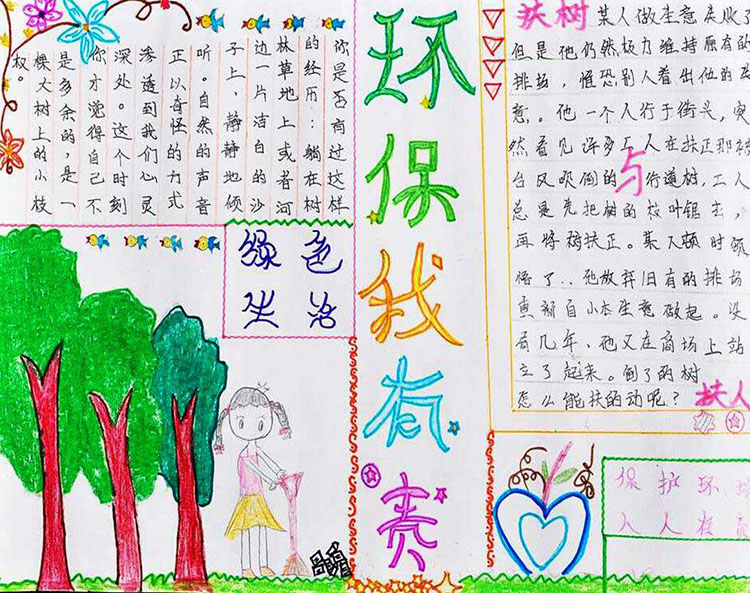 环保我有责
你是否有过这样
的经历：躺在树
林草地上或者河
边一片洁白的沙
子上，静静地倾
听。自然的声音
正以奇怪的力式
渗透到我们心灵
深处。这个时刻
你才觉得自己不
是多余的，是一
棵大树上的小枝
权。
绿色
生活
扶树
与
扶人
某人做生意失败了
但是他仍然极力维持原有的
排场，惟恐别人看出他的失
意。他一个人行于街头，突
然看见许多工人在扶正那被
台风吹倒的行道树，工人
总是先把树的枝叶锯去，
再将树扶正。某人顿时领
悟了..他放弃旧有的排场
重新自小本生意做起。没
有几年，他又在商场上站
立了起来。倒了的树
怎么能扶的动呢？
保护环境
人人有责